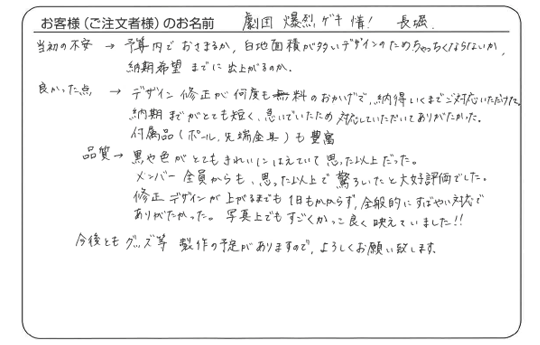 お客様（ご注文者様）のお名前　劇団 爆烈ゲキ情！　長堀.
当初の不安 → 予算内でおさまるか, 白地面積が多いデザインのためちゃっちくならないか,
納期希望までに出上がるのか.
良かった点 → デザイン修正が何度も無料のおかげで, 納得いくまでご対応いただけた。
納期までがとても短く、急いでいたため対応していただいてありがたかった。
付属品（ポール、先端金具）も豊富
品質 → 黒や色がとてもきれいにはえていて思った以上だった。
メンバー全員からも、思った以上で驚ろいたと大好評価でした。
修正デザインが上がるまでも1日もかからず, 全般的にすばやい対応で
ありがたかった。写真上でもすごくかっこ良く映えていました!!
今後ともグッズ等 製作の予定がありますので, よろしくお願い致します.